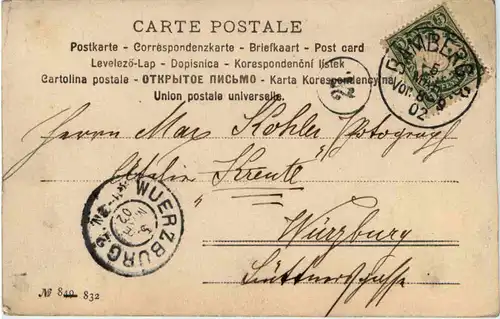 CARTE POSTALE
Postkarte - Correspondenzkarte - Briefkaart - Post card
Levelező-Lap - Dopisnica - Korespondenční lístek
Cartolina postale - ОТКРЫТОЕ ПИСЬМО - Karta Korespondencyjna
Union postale universelle.
BAMBERG
Vor.
02
Herrn Max Kohler, Photograph
Atelier Kreute
WUERZBURG 2.
02
Würzburg
№ 849 832